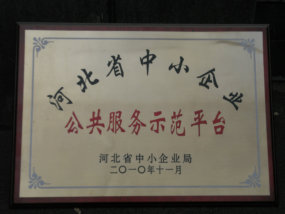 河北省中小企业
公共服务示范平台
河北省中小企业局
二〇一〇年十一月